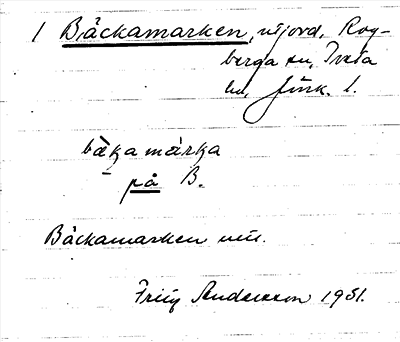 1 Bäckamarken, utjord, Rog-
berga sn, Tveta
hd, Jönk. l.
bäkamàrka
på B.
Bäckamarken
Fritz Andersson 1951.